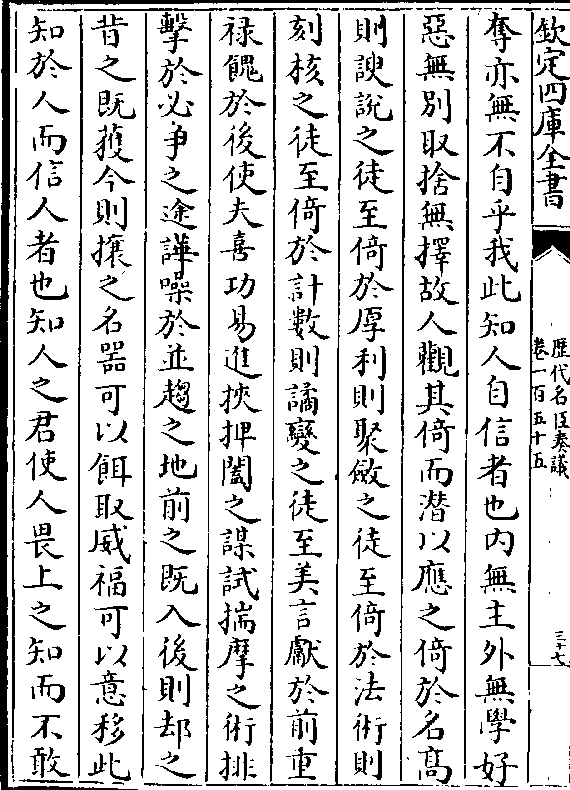 欽定四庫全書
歷代名臣奏議
卷一百五十五
三十七
奪亦無不自乎我此知人自信者也内無主外無學好
惡無别取捨無擇故人觀其倚而潛以應之倚於名髙
則諛說之徒至倚於厚利則聚斂之徒至倚於法術則
刻核之徒至倚於計數則譎變之徒至美言獻於前重
禄餽於後使夫喜功易進挾捭闔之謀試揣摩之術排
擊於必爭之途譁噪於並趨之地前之既入後則却之
昔之既獲今則攘之名器可以餌取威福可以意移此
知於人而信人者也知人之君使人畏上之知而不敢